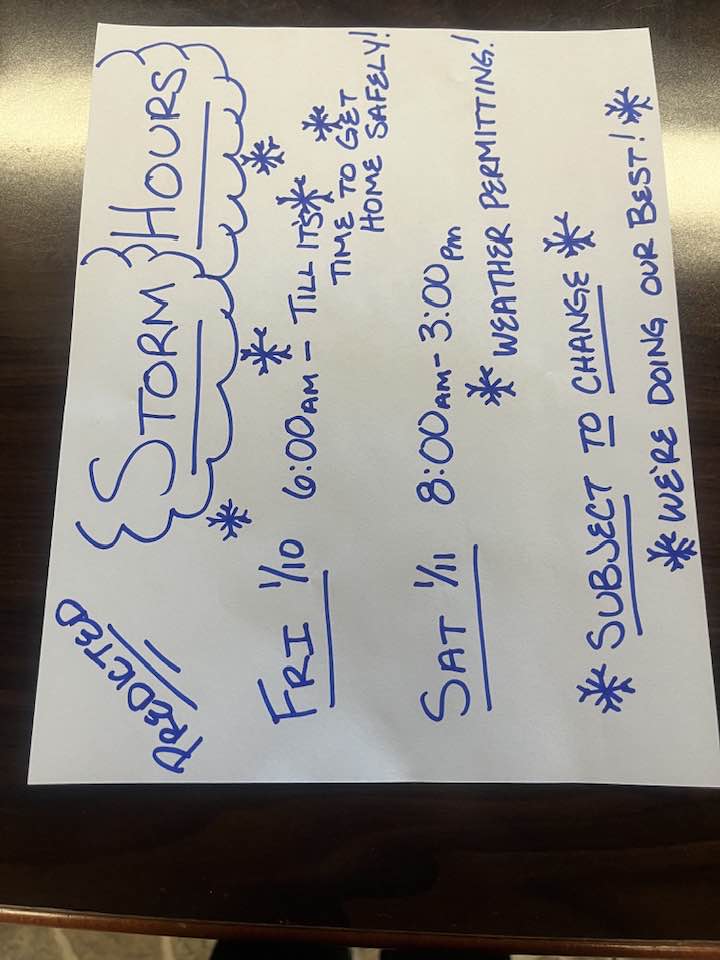 PREDICTED
STORM HOURS
FRI 1/10 6:00AM - TILL ITS
TIME TO GET
HOME SAFELY!
SAT 1/11 8:00AM - 3:00PM
WEATHER PERMITTING!
SUBJECT TO CHANGE
WE'RE DOING OUR BEST!